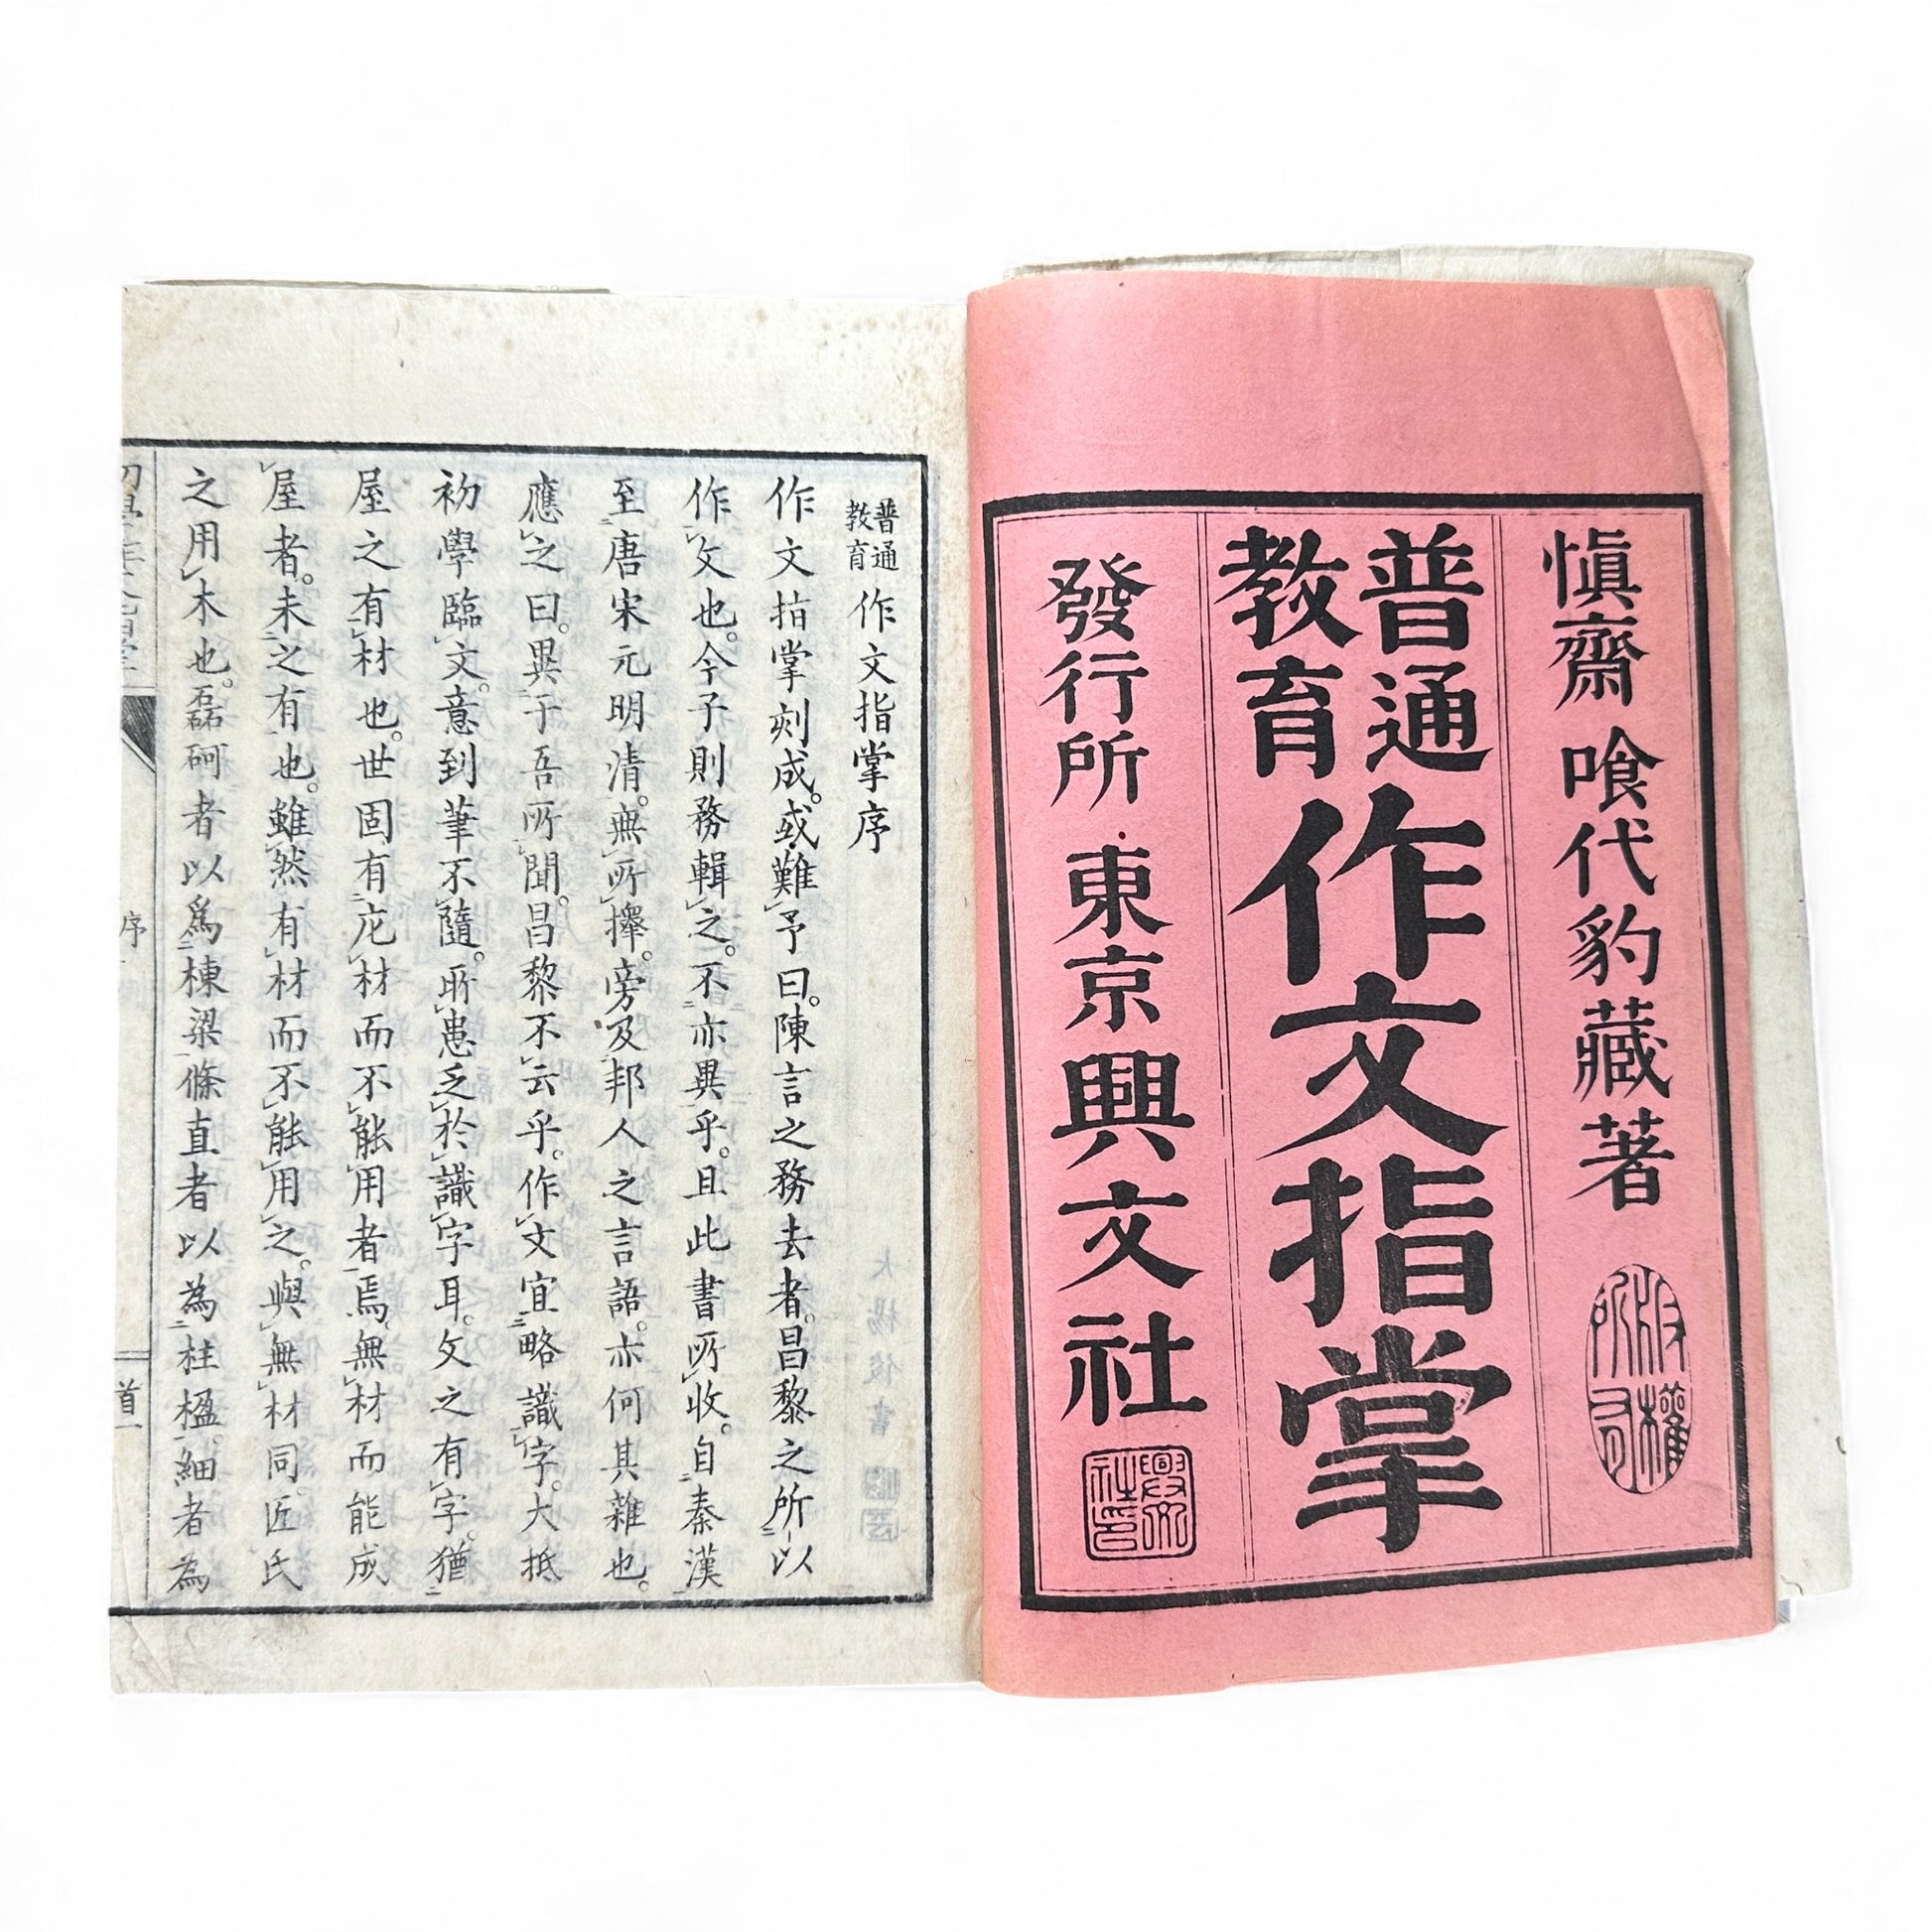 愼齋 喰代豹藏著
版權所有
普通
教育
作文指掌
發行所 東京興文社
興文社印
普通
教育
作文指掌序
作文指掌刻成。或難予曰。陳言之務去者。昌黎之所以
作文也。今子則務輯之。不亦異乎。且此書所收。自秦漢
至唐宋元明清。無所擇。旁及邦人之言語。亦何其雜也。
應之曰。異于吾所聞。昌黎不云乎。作文宜略識字。大抵
初學臨文。意到筆不隨。所患乏於識字耳。文之有字。猶
屋之有材也。世固有庀材而不能用者焉。無材而能成
屋者。未之有也。雖然有材而不能用之。與無材同。匠氏
之用木也。磊砢者以爲棟梁。條直者以為柱楹。細者為
序
首一